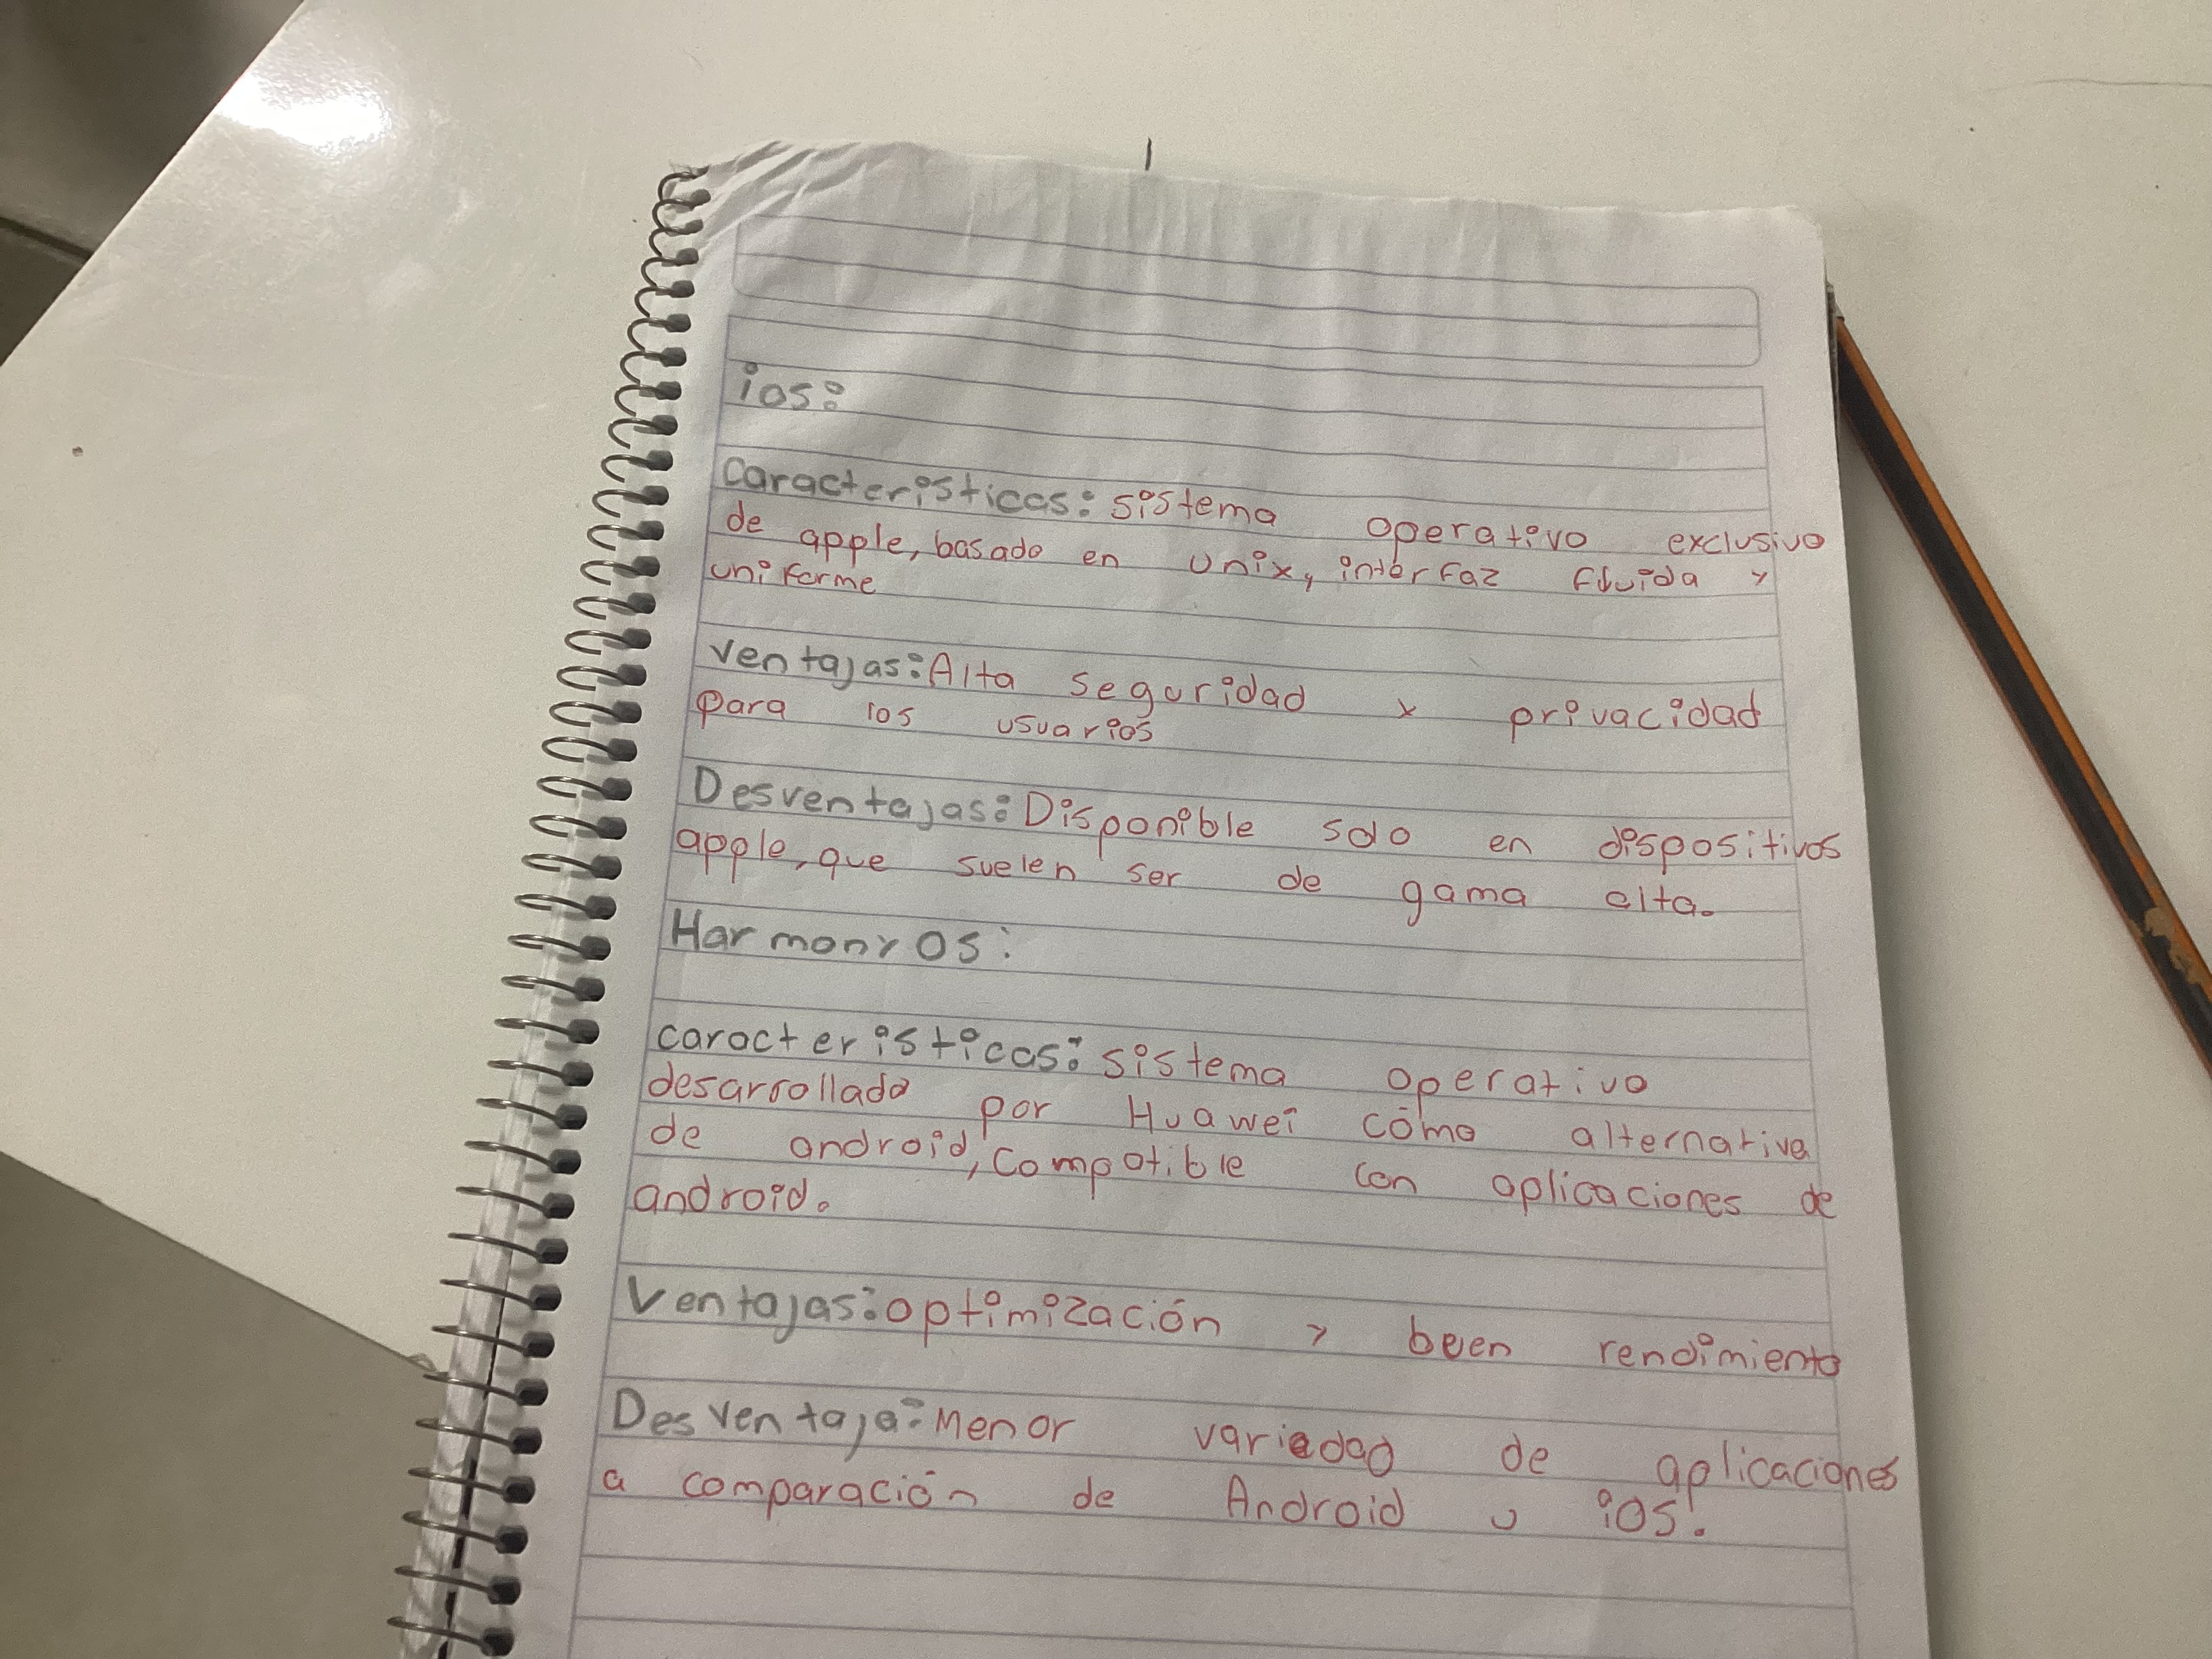 ios:
Características: sistema operativo exclusivo
de apple, basado en unix, interfaz fluida y
uniforme
ventajas: Alta seguridad y privacidad
para los usuarios
Desventajas: Disponible solo en dispositivos
apple, que suelen ser de gama alta.
HarmonyOS:
características: sistema operativo
desarrollado por Huawei cómo alternativa
de android, compatible con aplicaciones de
android.
Ventajas: optimización y buen rendimiento
Desventaja: Menor variedad de aplicaciones
a comparación de Android u iOS.